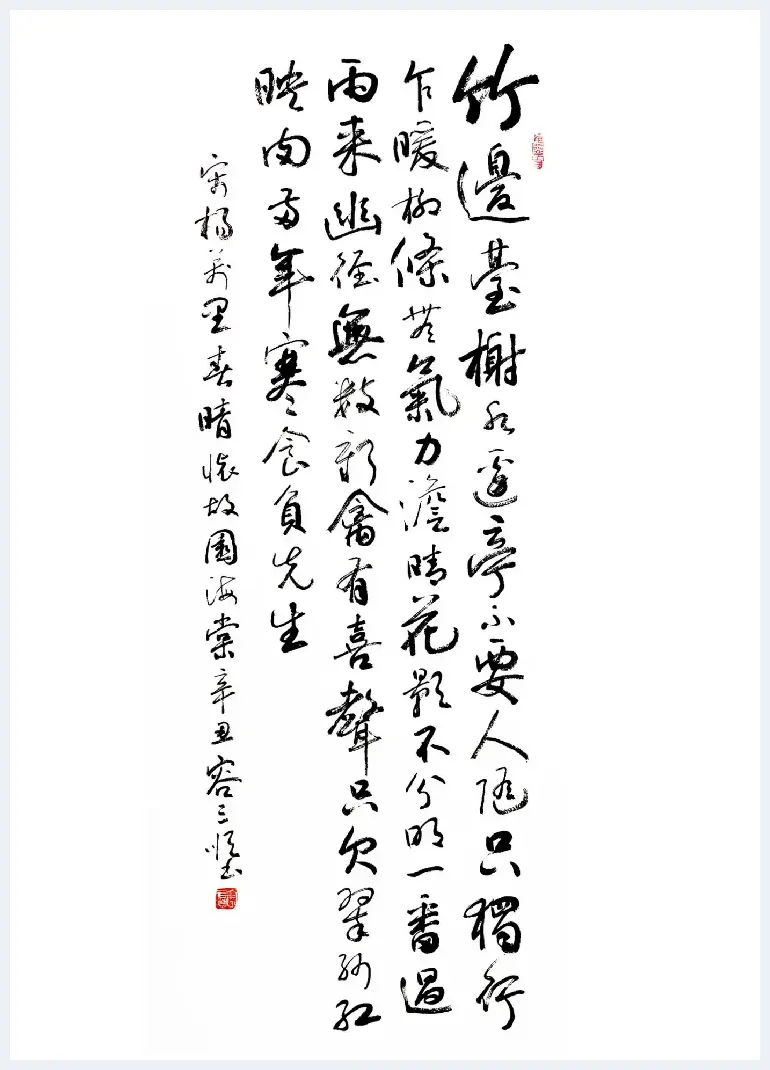 竹邊臺榭水邊亭不要人随只獨行
乍暖柳條無氣力澹晴花影不分明一番過
雨来幽徑無數新禽有喜聲只欠翠紗紅
映肉兩年寒食負先生
宋楊萬里春晴懷故園海棠辛丑容三书